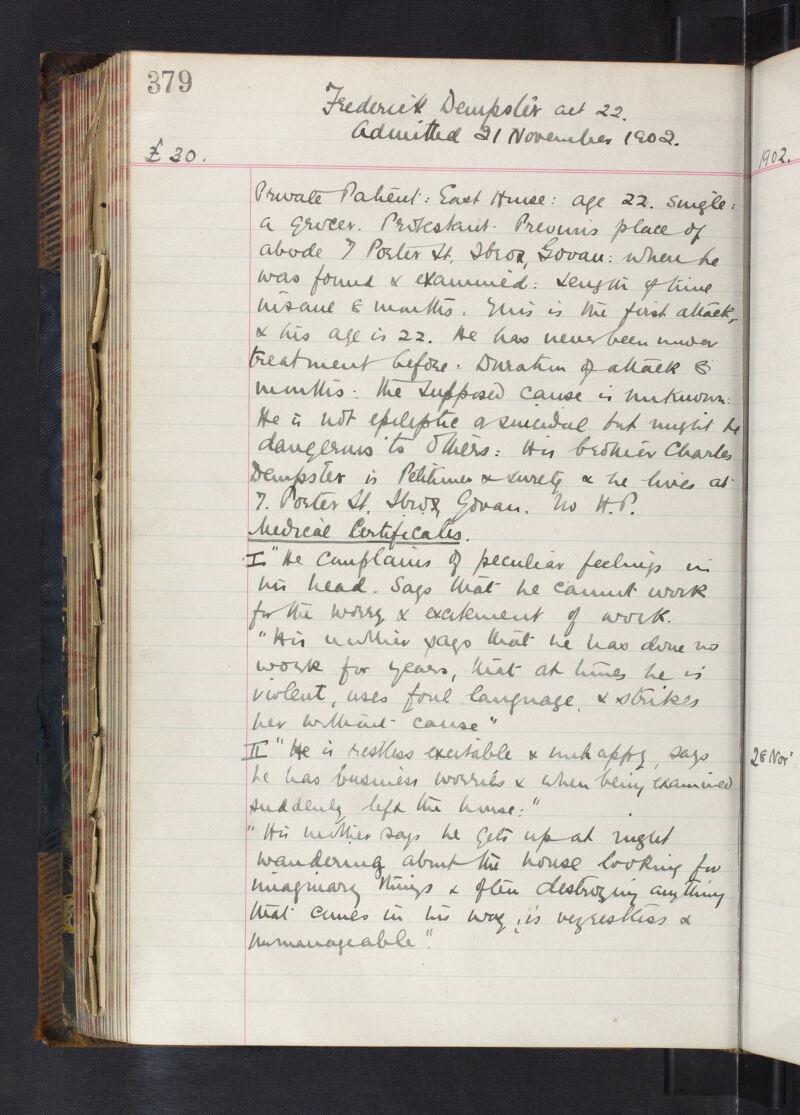 379
Frederick Dempster aet 22.
Admitted 21 November 1902.
£ 30.
1902.
Private Patient: East House: age 22. single:
a grocer. Protestant. Previous place of
abode 7 Porter St. Ibrox, Govan: where he
was found & examined: Length of time
insane 8 months. This is the first attack,
& his age is 22. He has never been under
treatment before. Duration of attack 8
months. The supposed cause is unknown:
He is not epileptic or suicidal but might be
dangerous to others: His brother Charles
Dempster is Petitioner & surety & he lives at
7. Porter St. Ibrox, Govan. No H.P.
Medical Certificates.
I "He complains of peculiar feelings in
his head. Says that he cannot work
for the worry & excitement of work.
"His mother says that he has done no
work for years, that at times he is
violent, uses foul language, & strikes
her without cause"
II "He is restless excitable & unhappy, says
he has business worries & when being examined
suddenly left the house:"
"His mother says he gets up at night
wandering about the house looking for
imaginary things & often destroying anything
that comes in his way, is very restless &
unmanageable".
28 Nov'